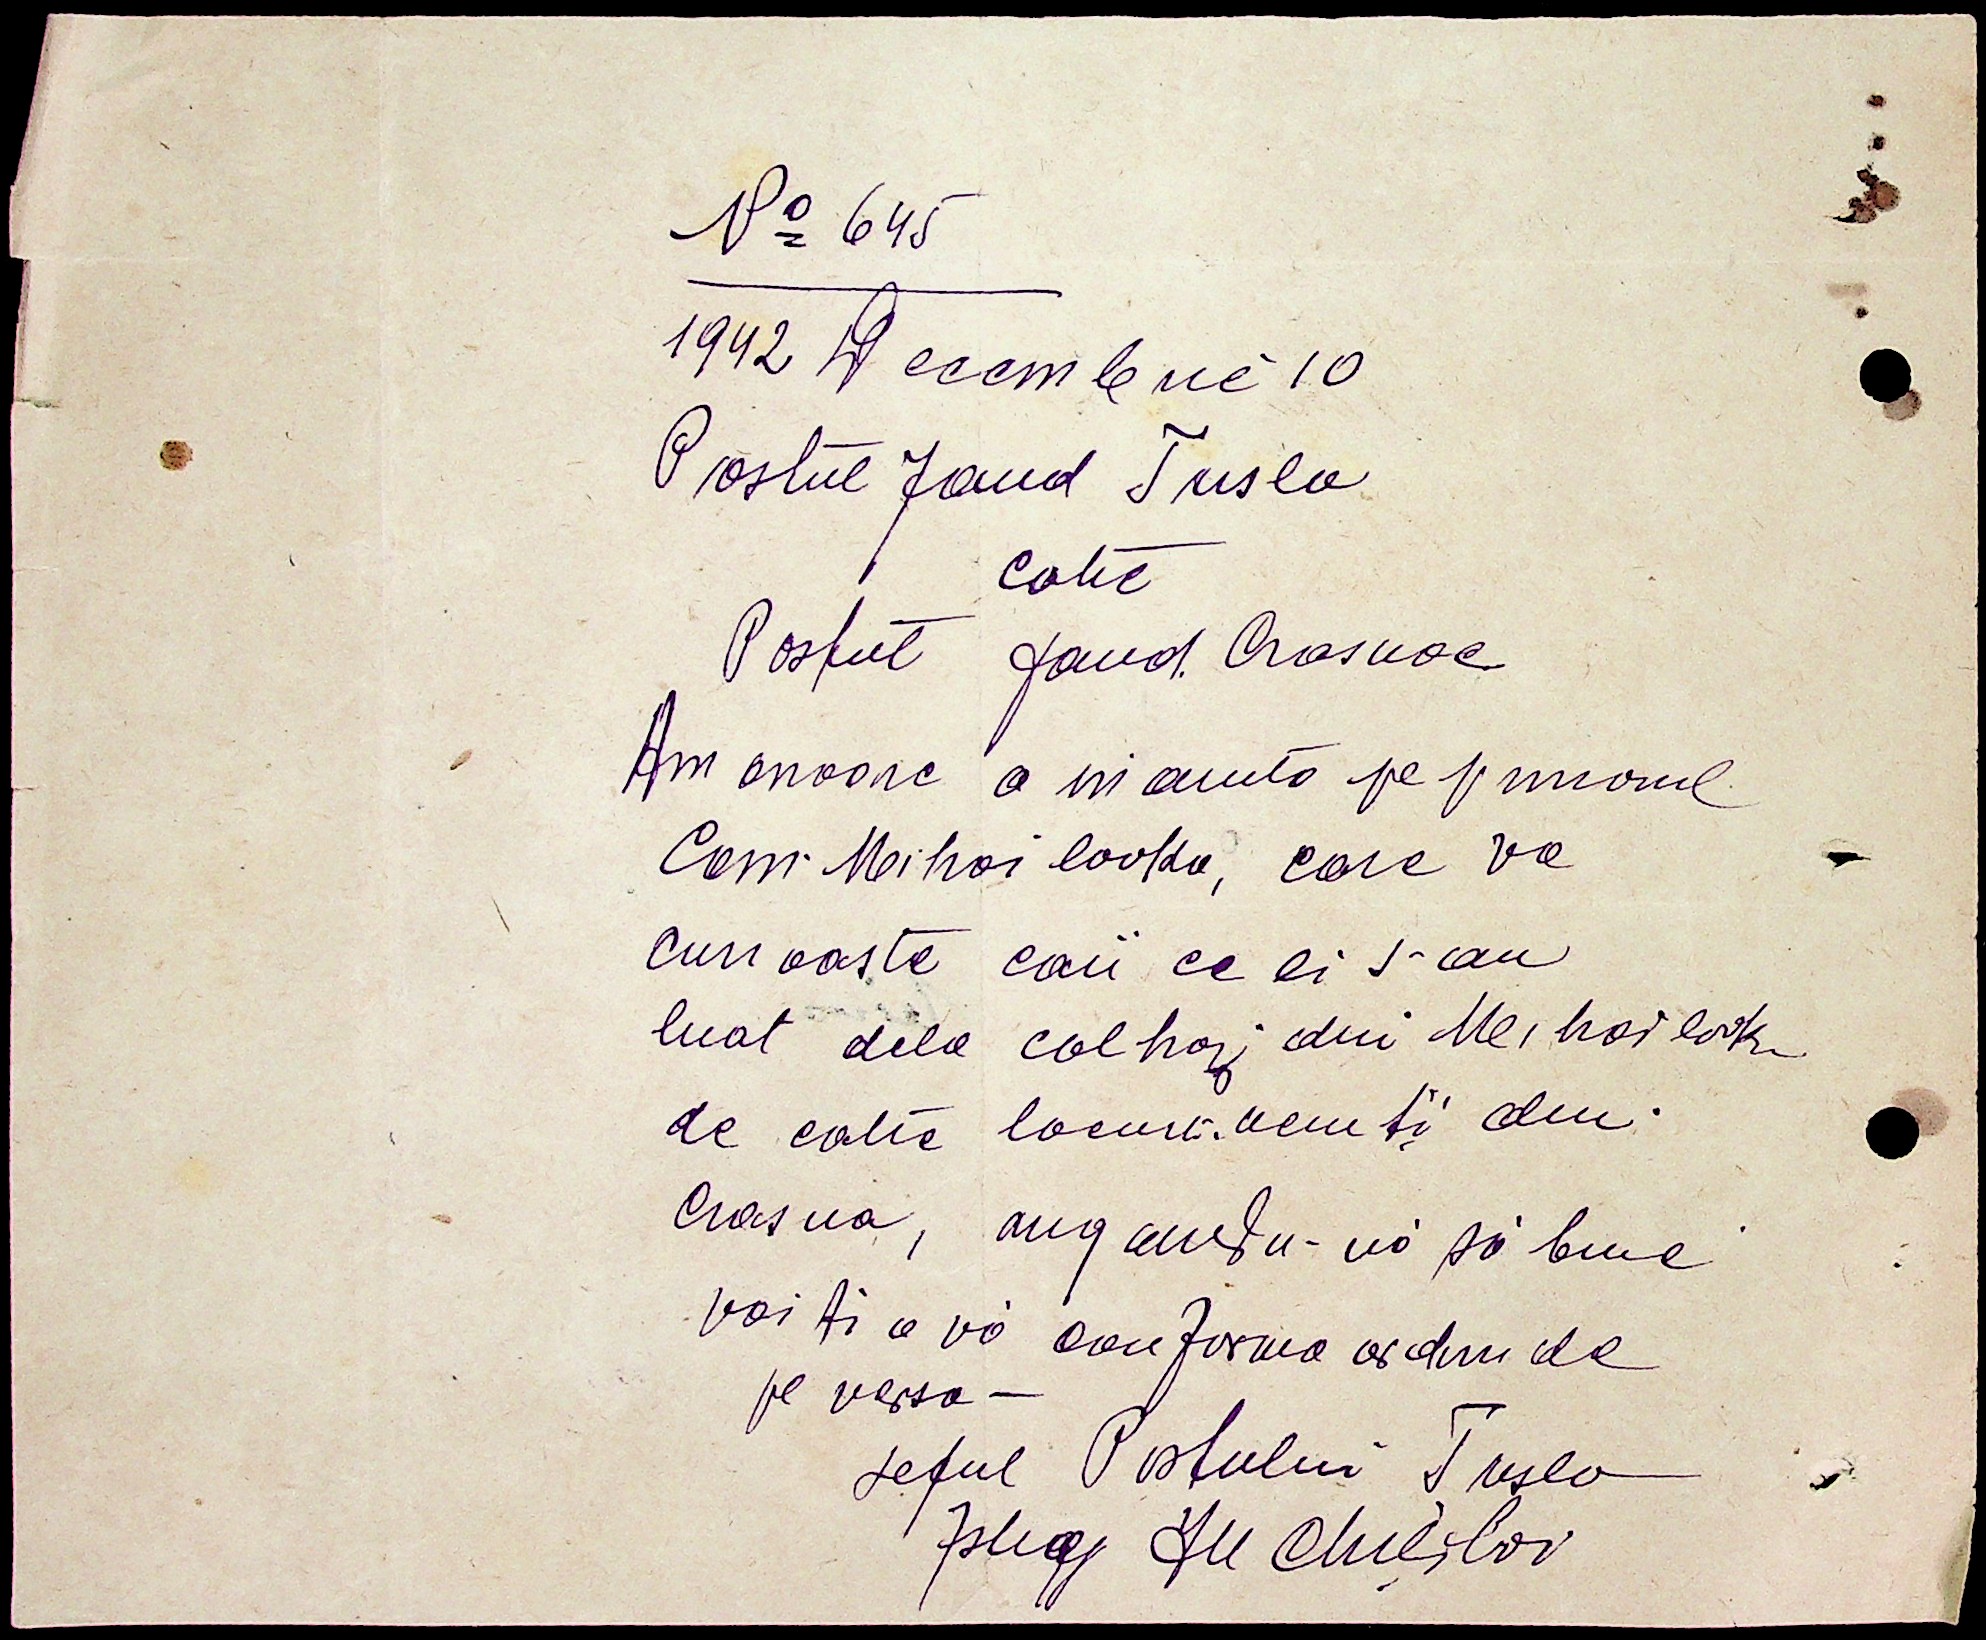 Nº 645
1942 Decembrie 10
Postul Jand Tuslo
cotre
Postul Jand. Crasnoe
Am onoare a inainta pe primarul
Com. Mihailovka, care va
cunoaste caii ce ei s-au
luat dela colhoz din Mihailovka
de catre locuri. nemtii din
Crasna, rugandu-vă să bine
voiti a vă conforma ordin de
pe verso -
seful Postului Tuslo